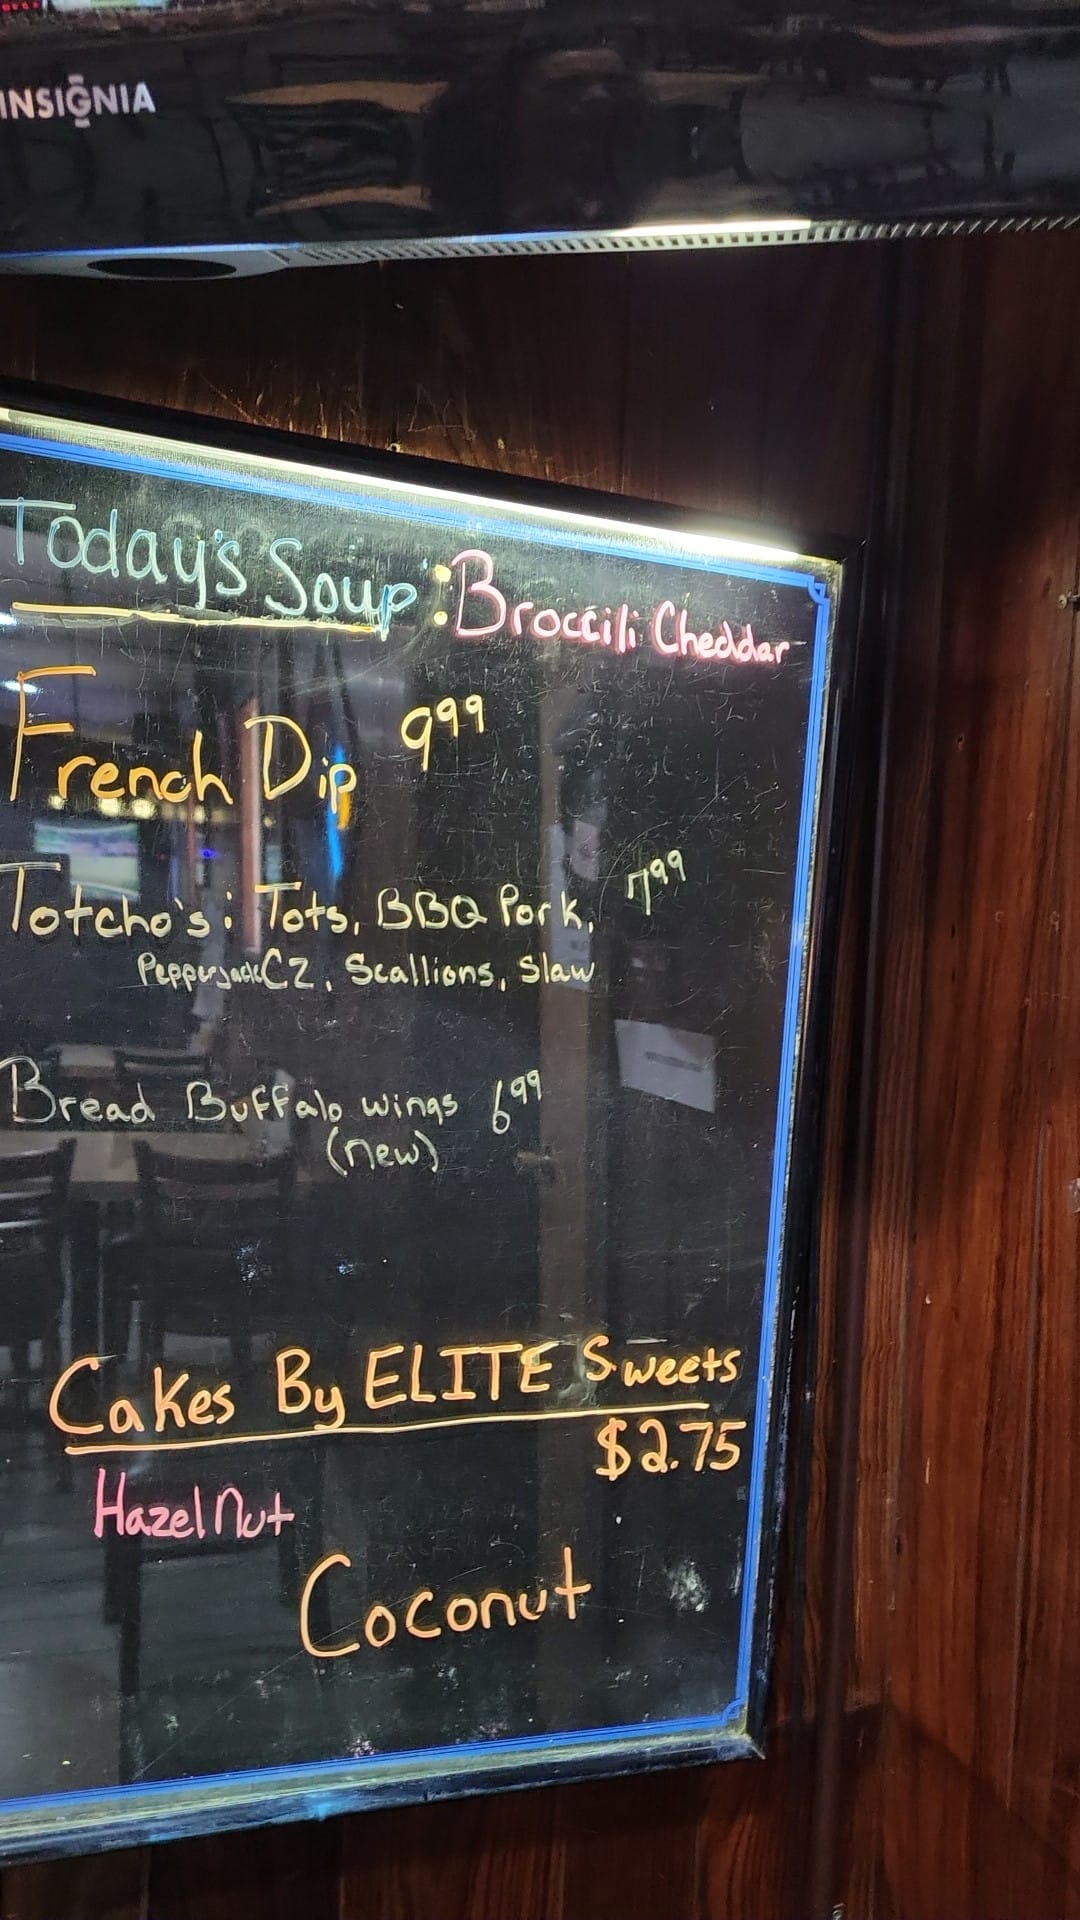 INSIGNIA
Today's Soup: Broccili Cheddar
French Dip 9⁹⁹
Totcho's: Tots, BBQ Pork, 7⁹⁹
PepperjackCZ, Scallions, Slaw
Bread Buffalo wings 6⁹⁹
(new)
Cakes By ELITE Sweets
$2.75
HazelNut
Coconut